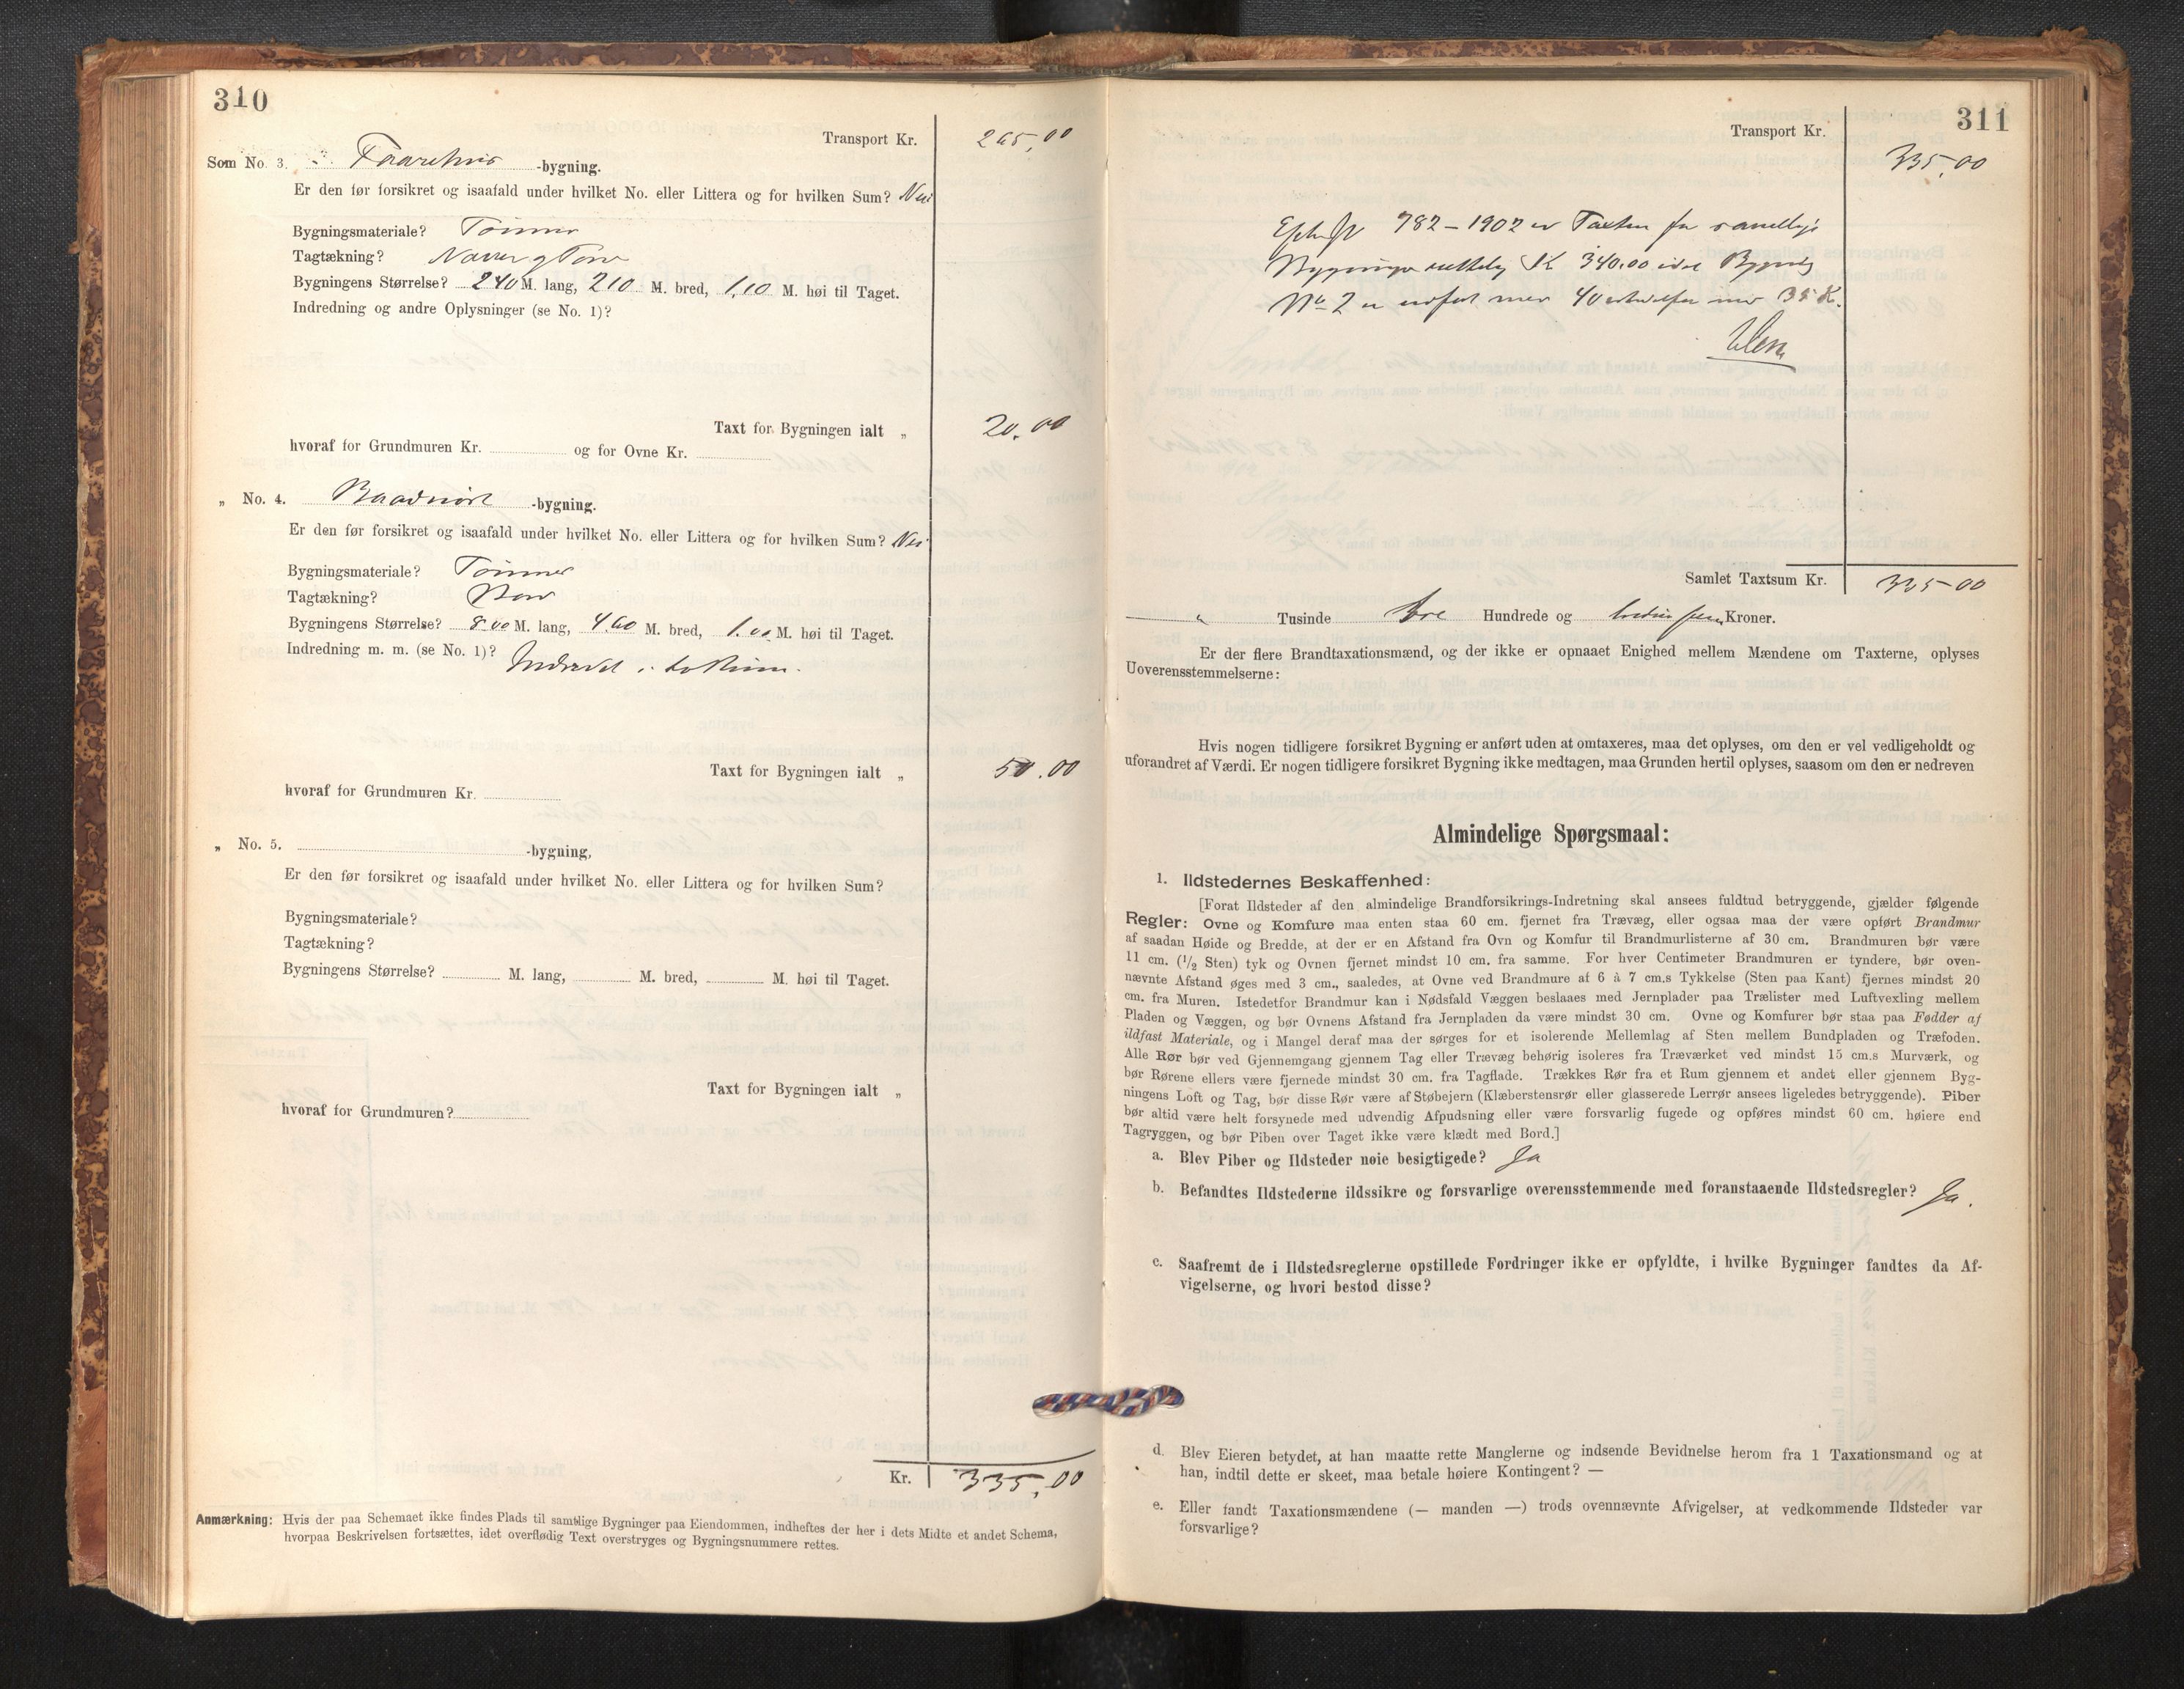 310
Transport Kr. 265,00
Som No. 3. Faarehus -bygning.
Er den før forsikret og isaafald under hvilket No. eller Littera og for hvilken Sum? Nei
Bygningsmateriale? Tømmer
Tagtækning? Næver og Torv
Bygningens Størrelse? 2.40 M. lang, 210 M. bred, 1,10 M. høi til Taget.
Indredning og andre Oplysninger (se No. 1)?
Taxt for Bygningen ialt „ 20.00
hvoraf for Grundmuren Kr. og for Ovne Kr.
„ No. 4. Baadnøst -bygning.
Er den før forsikret og isaafald under hvilket No. eller Littera og for hvilken Sum? Nei
Bygningsmateriale? Tømmer
Tagtækning?
Bygningens Størrelse? 8.00 M. lang, 4.60 M. bred, 1.00 M. høi til Taget.
Indredning m. m. (se No. 1)? Indredet i to Rum.
Taxt for Bygningen ialt „ 50.00
hvoraf for Grundmuren Kr.
„ No. 5. -bygning,
Er den før forsikret og isaafald under hvilket No. eller Littera og for hvilken Sum?
Bygningsmateriale?
Tagtækning?
Bygningens Størrelse? M. lang, M. bred, M. høi til Taget.
Taxt for Bygningen ialt „
hvoraf for Grundmuren?
Kr. 335,00
Anmærkning: Hvis der paa Schemaet ikke findes Plads til samtlige Bygninger paa Eiendommen, indheftes der her i dets Midte et andet Schema,
hvorpaa Beskrivelsen fortsættes, idet overflødig Text overstryges og Bygningsnummere rettes.
311
Transport Kr.
335,00
782 – 1902 er Taxten for samtlige
Bygninger K 340.00 idet Bygning
No 2 er med 40 istedetfor med 35 K.
Samlet Taxtsum Kr. 335 00
" Tusinde tre Hundrede og trediefem Kroner.
Er der flere Brandtaxationsmænd, og der ikke er opnaaet Enighed mellem Mændene om Taxterne, oplyses
Uoverensstemmelserne:
Hvis nogen tidligere forsikret Bygning er anført uden at omtaxeres, maa det oplyses, om den er vel vedligeholdt og
uforandret af Værdi. Er nogen tidligere forsikret Bygning ikke medtagen, maa Grunden hertil oplyses, saasom om den er nedreven
Almindelige Spørgsmaal:
1. Ildstedernes Beskaffenhed:
[Forat Ildsteder af den almindelige Brandforsikrings-Indretning skal ansees fuldtud betryggende, gjælder følgende
Regler: Ovne og Komfure maa enten staa 60 cm. fjernet fra Trævæg, eller ogsaa maa der være opført Brandmur
af saadan Høide og Bredde, at der er en Afstand fra Ovn og Komfur til Brandmurlisterne af 30 cm. Brandmuren bør være
11 cm. (1/2 Sten) tyk og Ovnen fjernet mindst 10 cm. fra samme. For hver Centimeter Brandmuren er tyndere, bør oven-
nævnte Afstand øges med 3 cm., saaledes, at Ovne ved Brandmure af 6 à 7 cm.s Tykkelse (Sten paa Kant) fjernes mindst 20
cm. fra Muren. Istedetfor Brandmur kan i Nødsfald Væggen beslaaes med Jernplader paa Trælister med Luftvexling mellem
Pladen og Væggen, og bør Ovnens Afstand fra Jernpladen da være mindst 30 cm. Ovne og Komfurer bør staa paa Fødder af
ildfast Materiale, og i Mangel deraf maa der sørges for et isolerende Mellemlag af Sten mellem Bundpladen og Træfoden.
Alle Rør bør ved Gjennemgang gjennem Tag eller Trævæg behørig isoleres fra Træværket ved mindst 15 cm.s Murværk, og
bør Rørene ellers være fjernede mindst 30 cm. fra Tagflade. Trækkes Rør fra et Rum gjennem et andet eller gjennem Byg-
ningens Loft og Tag, bør disse Rør være af Støbejern (Klæberstensrør eller glasserede Lerrør ansees ligeledes betryggende). Piber
bør altid være helt forsynede med udvendig Afpudsning eller være forsvarlig fugede og opføres mindst 60 cm. høiere end
Tagryggen, og bør Piben over Taget ikke være klædt med Bord.]
a. Blev Piber og Ildsteder nøie besigtigede? Ja
b. Befandtes Ildstederne ildssikre og forsvarlige overensstemmende med foranstaaende Ildstedsregler? Ja.
c. Saafremt de i Ildstedsreglerne opstillede Fordringer ikke er opfyldte, i hvilke Bygninger fandtes da Af-
vigelserne, og hvori bestod disse?
d. Blev Eieren betydet, at han maatte rette Manglerne og indsende Bevidnelse herom fra 1 Taxationsmand og at
han, indtil dette er skeet, maa betale høiere Kontingent? —
e. Eller fandt Taxationsmændene (— manden —) trods ovennævnte Afvigelser, at vedkommende Ildsteder var
forsvarlige?